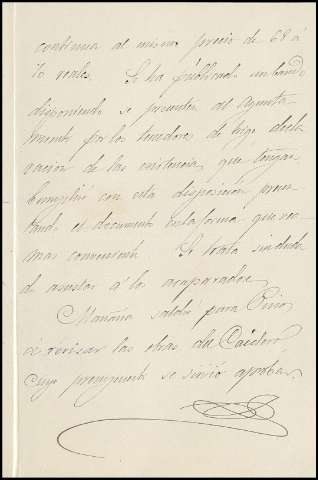 continua al mismo precio de 68 á
70 reales. Se ha publicado un bando
disponiendo se presenten al Ayunta-
miento por los tenedores de trigo decla-
racion de las existencias que tengan.
Cumpliré con esta disposicion presen-
tando el documento en la forma que vea
mas conveniente. Se trata sin duda
de asustar á los acaparadores.
Mañana saldré para
á revisar las obras del
cuyo presupuesto se sirvió aprobar.